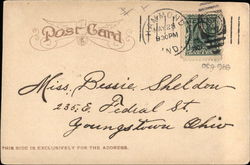 Post Card
HAMMOND
MAY 28
8 30 PM
IND.
Miss. Bessie Sheldon
235, E Fedral St.
Youngstown Ohio
THIS SIDE IS EXCLUSIVELY FOR THE ADDRESS.